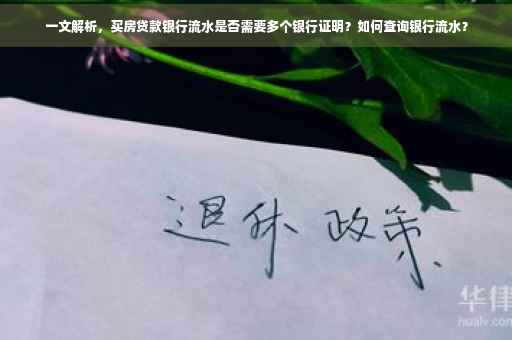 一文解析，买房贷款银行流水是否需要多个银行证明？如何查询银行流水？
退休 政策
华律
hualv.com